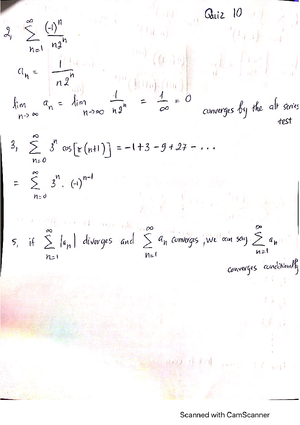 Quiz 10
2, ∑_{n=1}^{∞} (-1)^n / n2^n
a_n = 1 / n2^n
lim_{n→∞} a_n = lim_{n→∞} 1 / n2^n = 1/∞ = 0 converges by the alt series test
3, ∑_{n=0}^{∞} 3^n cos[π(n+1)] = -1+3-9+27-...
= ∑_{n=0}^{∞} 3^n · (-1)^{n-1}
5. if ∑_{n=1}^{∞} |a_n| diverges and ∑_{n=1}^{∞} a_n converges, we can say ∑_{n=1}^{∞} a_n
converges conditionally
Scanned with CamScanner